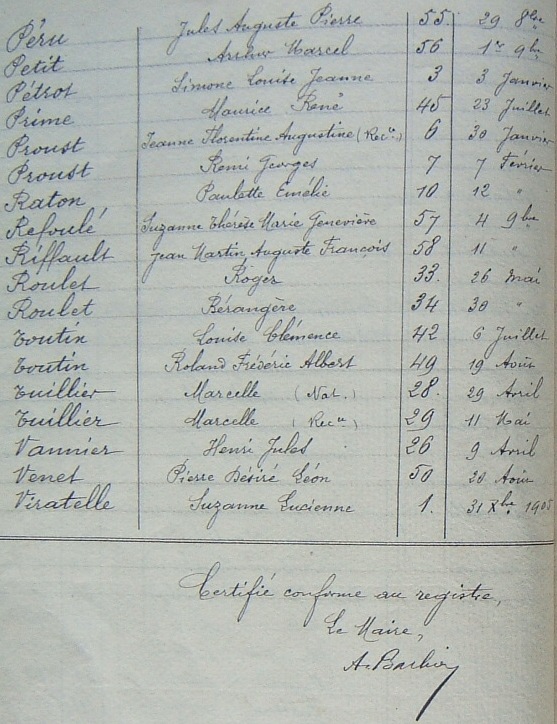 Péru Jules Auguste Pierre 55. 29 8bre
Petit Arthur Marcel 56 1er 9bre
Pétrot Simone Louise Jeanne 3 3 Janvier
Prime Maurice René 45 23 Juillet
Proust Jeanne Florentine Augustine (Recce.) 6 30 Janvier
Proust Remi Georges 7 7 Février
Raton Paulette Emélie 10 12 "
Refoulé Suzanne Thérèse Marie Geneviève 57 4 9bre
Riffault Jean Martin Auguste Francois 58 11 "
Roulet Roger 33. 26 Mai
Roulet Bérangère 34 30 "
Toutin Louise Clémence 42 6 Juillet
Toutin Roland Frédéric Albert 49 19 Août
Tuillier Marcelle (Nat.) 28. 29 Avril
Tuillier Marcelle (Recce) 29 11 Mai
Vannier Henri Jules 26 9 Avril
Venet Pierre Désiré Léon 50 20 Août
Viratelle Suzanne Lucienne 1. 31 Xbre 1905
Certifié conforme au registre,
Le Maire,
A. Barbier